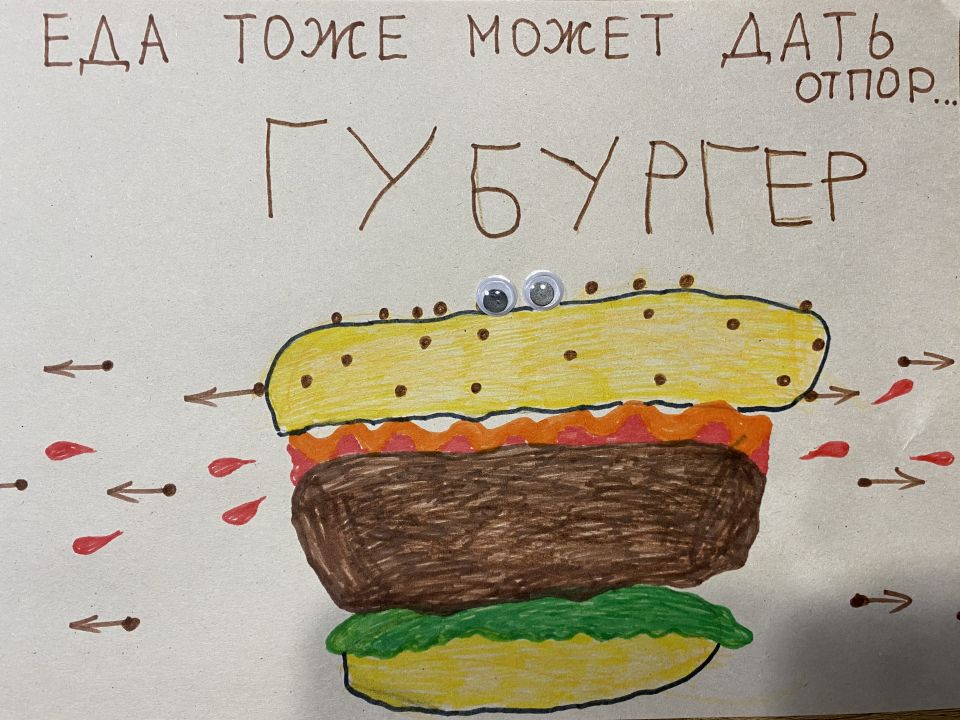 ЕДА ТОЖЕ МОЖЕТ ДАТЬ
ОТПОР...
ГУБУРГЕР